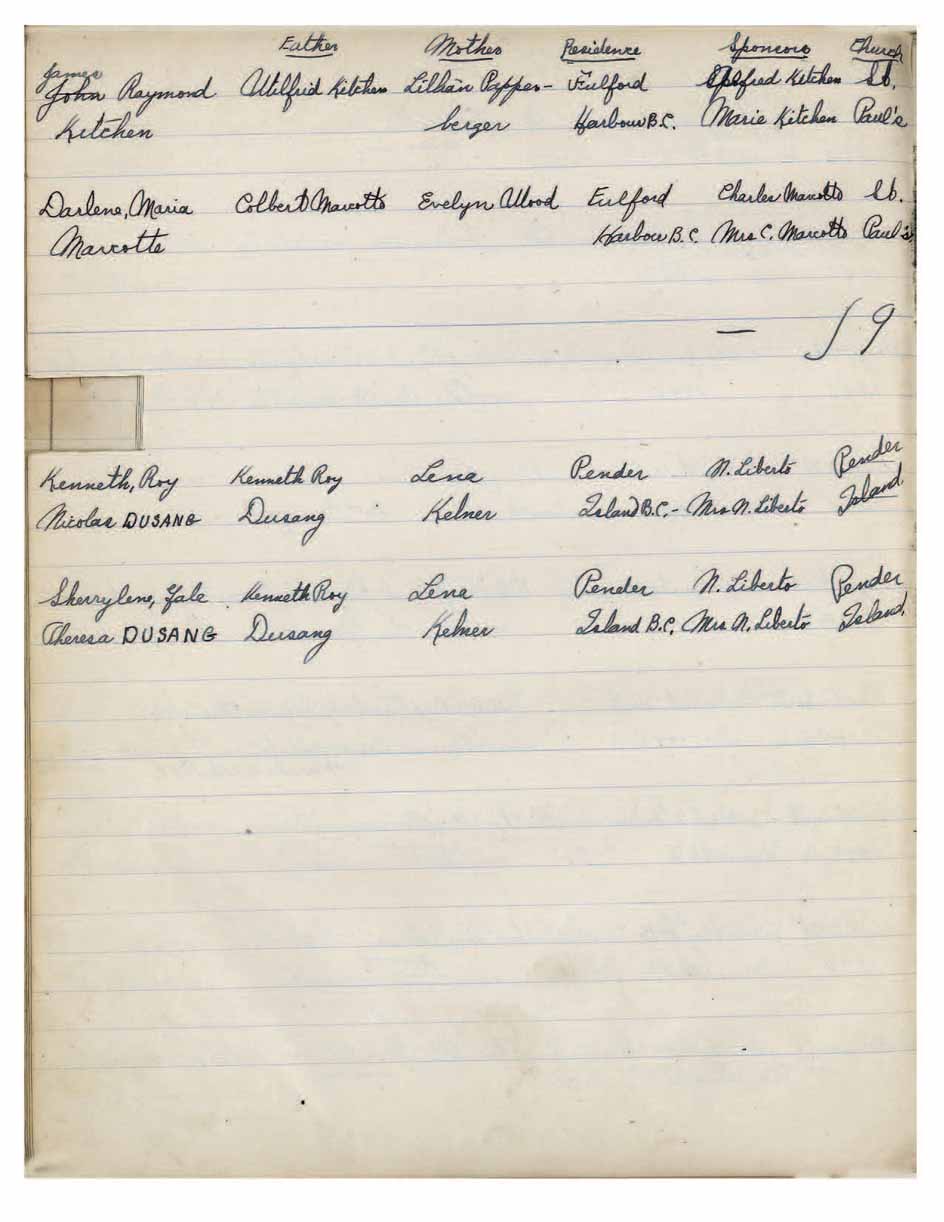 Father Mother Residence Sponsors Church
James
John Raymond Wilfrid Kitchen Lillian Pappen- Fulford Kitchen St.
Kitchen berger Harbour B.C. Marie Kitchen Paul's
Darlene, Maria Colbert Marcotte Evelyn Wood Fulford Charles Marcotte St.
Marcotte Harbour B.C. Mrs C. Marcotte Paul's
— 59
Kenneth, Roy Kenneth Roy Lena Pender N. Liberto Pender
Nicolas DUSANG Dusang Kelner Island B.C. - Mrs N. Liberto Island
Sherrylene, Gale Kenneth Roy Lena Pender N. Liberto Pender
Theresa DUSANG Dusang Kelner Island B.C. Mrs N. Liberto Island